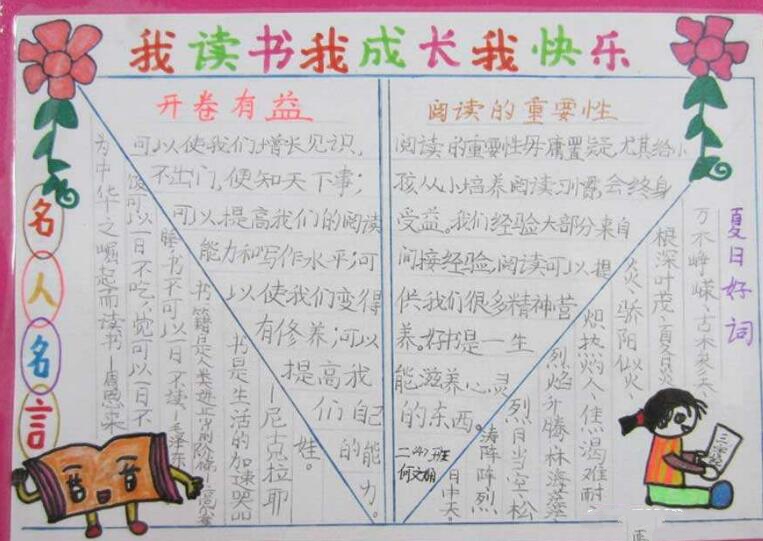 我读书我成长我快乐
开卷有益
可以使我们增长见识,
不出门,便知天下事;
可以提高我们的阅读
能力和写作水平;可
以使我们变得
有修养;可以
提高我
们自己
的能
力。
阅读的重要性
阅读的重要性毋庸置疑,尤其给小
孩从小培养阅读习惯,会终身
受益。我们经验大部分来自
间接经验,阅读可以提
供我们很多精神营
养。好书是一生
能滋养心灵
的东西。
二班
何文
名人名言
为中华之崛起而读书—周恩来
饭可以一日不吃,觉可以一日不
睡,书不可以一日不读。—毛泽东
书籍是人类进步的阶梯。
书是生活的加速器
—尼克拉耶
娃。
夏日好词
万木峥嵘、古木参天、
根深叶茂、夏日炎
炎、骄阳似火、
炽热灼人、焦渴难耐
烈焰升腾、林海莽莽、
烈日当空、松
涛阵阵、烈
日中天。